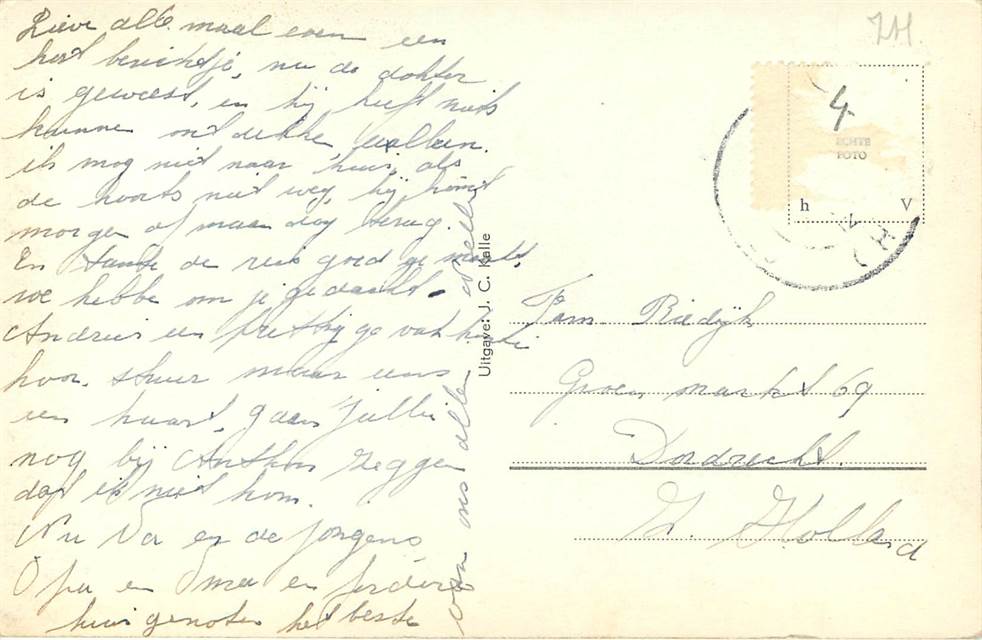 Lieve alle maal even een
kort berichtje, nu de dokter
is geweest, en hij heeft niets
kunnen ont dekke alleen
ik mog niet naar huis als
de koorts niet weg, hij komt
morgen of maan dag terug.
En Tante de reis goed ge maakt,
we hebbe om je gedacht
Andries een prettige vakantie
hoor. stuur maar eens
een kaart, gaan jullie
nog bij Anthon zeggen
dat ik niet kom.
Nu Va en de Jongens
Opa en Oma en verdere
huis genoten het beste
van ons allen
Uitgave: J. C. Kalle
ZH.
4
ECHTE
FOTO
h V
Fam. Riedijk
Groen markt 69
Dordrecht.
Z. Holland